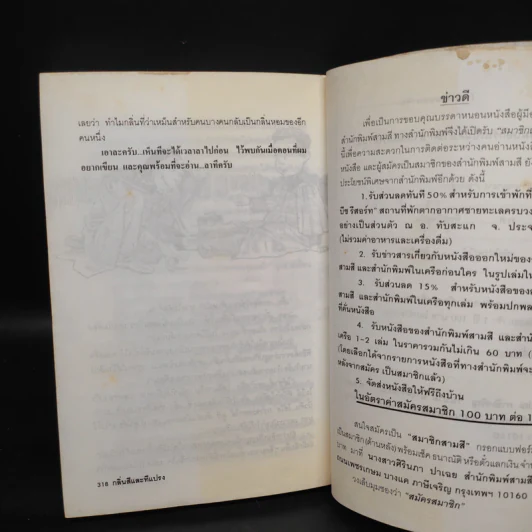 เลยว่า ทำไมกลิ่นที่ว่าเหม็นสำหรับคนบางคนกลับเป็นกลิ่นหอมของอีก
คนหนึ่ง
เอาละครับ..เห็นทีจะได้เวลาลาไปก่อน ไว้พบกันเมื่อตอนที่ผม
อยากเขียน และคุณพร้อมที่จะอ่าน..ลาทีครับ
318 กลิ่นสีและทีแปรง
ข่าวดี
เพื่อเป็นการขอบคุณบรรดาหนอนหนังสือผู้มี
สำนักพิมพ์สามสี ทางสำนักพิมพ์จึงได้เปิดรับ "สมาชิก
นี้เพื่อความสะดวกในการติดต่อระหว่างคนอ่านหนังสื
หนังสือ และผู้สมัครเป็นสมาชิกของสำนักพิมพ์สามสี ยัง
ประโยชน์พิเศษจากสำนักพิมพ์อีกด้วย ดังนี้
1.รับส่วนลดทันที 50% สำหรับการเข้าพักที่
บีช รีสอร์ท" สถานที่พักตากอากาศชายทะเลครบวง
อย่างเป็นส่วนตัว ณ อ. ทับสะแก จ. ประจ
(ไม่รวมค่าอาหารและเครื่องดื่ม)
2. รับข่าวสารเกี่ยวกับหนังสือออกใหม่ของ
สามสี และสำนักพิมพ์ในเครือก่อนใคร ในรูปเล่มใน
3. รับส่วนลด 15% สำหรับหนังสือของ
สามสี และสำนักพิมพ์ในเครือทุกเล่ม พร้อมปกพล
ที่คั่นหนังสือ
4. รับหนังสือของสำนักพิมพ์สามสี และสำนั
เครือ 1-2 เล่ม ในราคารวมกันไม่เกิน 60 บาท (
(โดยเลือกได้จากรายการหนังสือที่ทางสำนักพิมพ์จะ
หลังจากสมัคร เป็นสมาชิกแล้ว)
5. จัดส่งหนังสือให้ฟรีถึงบ้าน
ในอัตราค่าสมัครสมาชิก 100 บาท ต่อ 1
สนใจสมัครเป็น "สมาชิกสามสี" กรอกแบบฟอร์
เป็นสมาชิก(ด้านหลัง) พร้อมเช็ค ธนาณัติ หรือตั๋วแลกเงิน จำน
บาท มาที่ นางสาวศิรินภา ปาเฉย สำนักพิมพ์สามสี
ถนนเพชรเกษม บางแค ภาษีเจริญ กรุงเทพฯ 10160
วงเล็บมุมซองว่า "สมัครสมาชิก"